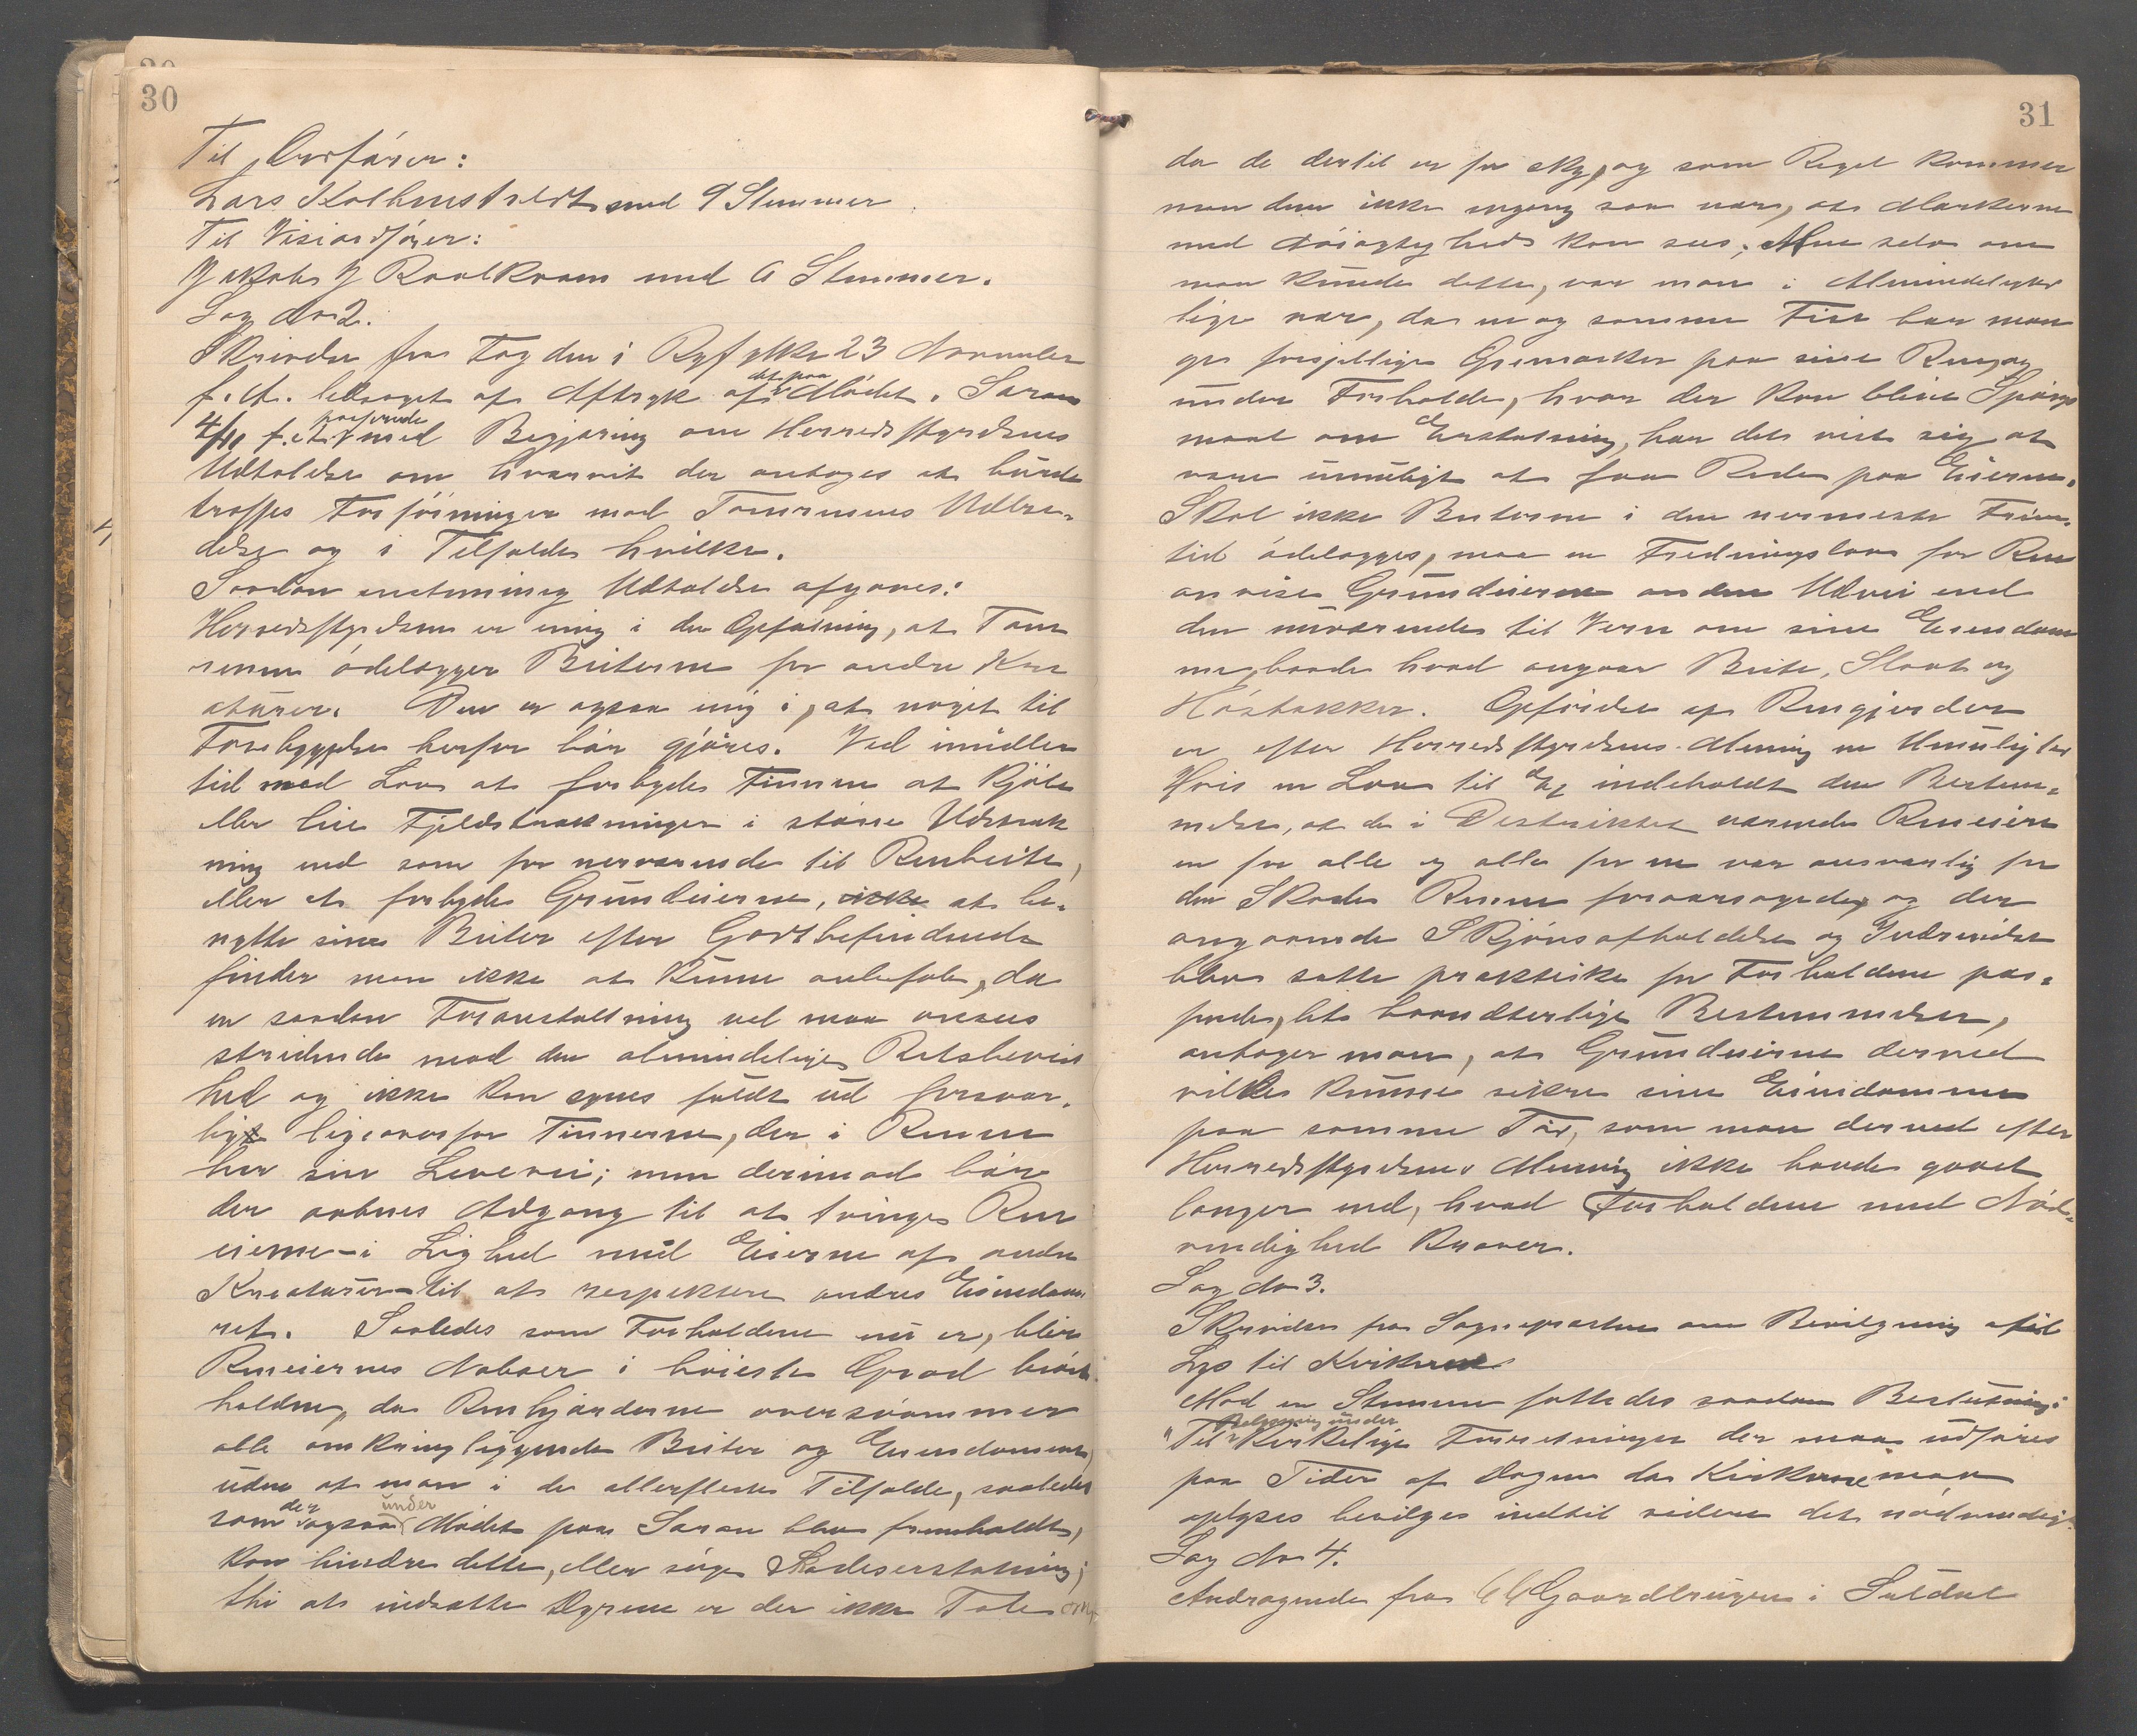 30
Til Ordfører:
Lars Kolbenstvedt med 9 Stemmer.
Til Viseordfører:
Jakob J Roalkvam med 6 Stemmer.
Sag No 2.
Skrivelse fra Fogden i Ryfylke 23 November
f. A. ledsaget af Aftryk af det paa Mødet. Saron
4/10 f. A. passerede med Begjæring om Herredsstyrelsens
Udtalelse om hvorvidt der antages at burde
træffes Forføininger mod Tamrenens Udbre-
delse og i Tilfælde hvilke.
Saadan enstemmig Udtalelse afgaves:
Herredsstyrelsen er enig i den Opfatning, at Tam
renen ødelægger Beiterne for andre Kre
aturer. Den er ogsaa enig i, at noget til
Forebyggelse herfor bør gjøres. Ved imidler
tid med Lov at forbyde Finnene at kjøbe
eller leie Fjeldstrækninger i større Udstræk
ning end som for nærværende til Renbeite,
eller at forbyde Grundeierne, ikke at be-
nytte sine Beiter efter Godtbefindende
finder man ikke at kunne anbefale, da
en saadan Foranstaltning vel maa ansees
stridende mod den almindelige Retsbevist
hed og ikke kan synes fuldt ud forsvar-
lig ligeoverfor Finnerne, der i Renen
har sin Levevei; men derimod bør
der aabnes Adgang til at tvinge Ren
eierne - i Lighed med Eierne af andre
Kreaturer - til at respektere andres Eiendoms
ret. Saaledes som Forholdene nu er, blir
Reneiernes Naboer i høieste Grad
holdne, da Renhjorderne oversvømmer
alle omkringliggende Beiter og Eiendomme,
uden at man i de allerfleste Tilfælde, saaledes
som der ogsaa under Mødet paa Saron blev fremholdt,
kan hindre dette, eller søge Skadeserstatning;
thi at indsætte Dyrene er der ikke Tale om
31
da de dertil er for sky, og som Regel kommer
man dem ikke engang saa nær, at Mærkerne
med Nøiagtighed kan sees. Men selv om
man kunde dette, var man i Almindelighed
lige nær, da en og samme Fin har man
ge forsjellige Øremærker paa sine Ren, og
under Forholde, hvor der kan blive Spørgs
maal om Erstatning, har det vist sig at
være umuligt at faa Rede paa Eieren.
Skal ikke Beiterne i den nermeste Frem-
tid ødelægges, maa en Fredningslov for Ren
anvise Grundeierne anden Udvei end
den nuværende til Vern om sine Eiendom
me, baade hvad angaar Beite, Slaat og
Høstakker. Opførelse af Rengjerder
er efter Herredsstyrelsens Mening en Umulighed
Hvis en Lov til Ex indeholdt den Bestem-
melse, at de i Distriktet værende Reneiere
en for alle og alle for en var ansvarlig for
den Skade Renen foraarsagede, og der
angaaende Skjønsafholdelse og Inddrivelse
blev satte praktiske for Forholdene pas-
sende, let haandterlige Bestemmelser,
antager man, at Grundeierne derved
vilde kunne sikre sine Eiendomme
paa samme Tid, som man derved efter
Herredsstyrelsens Mening ikke havde gaaet
længer end, hvad Forholdene med Nød-
vendighed kræver.
Sag No 3.
Skrivelse fra Sognepresten om Bevilgning til
Lys til Kirkerne
Mod en Stemme fattedes saadan Beslutning:
"Til Belysning under Kirkelige Forretninger der maa udføres
paa Tider af Dagen da Kirkerne maa
oplyses bevilges indtil videre det nødvendige."
Sag No 4.
Andragende fra 66 Gaardbrugere i Suldal